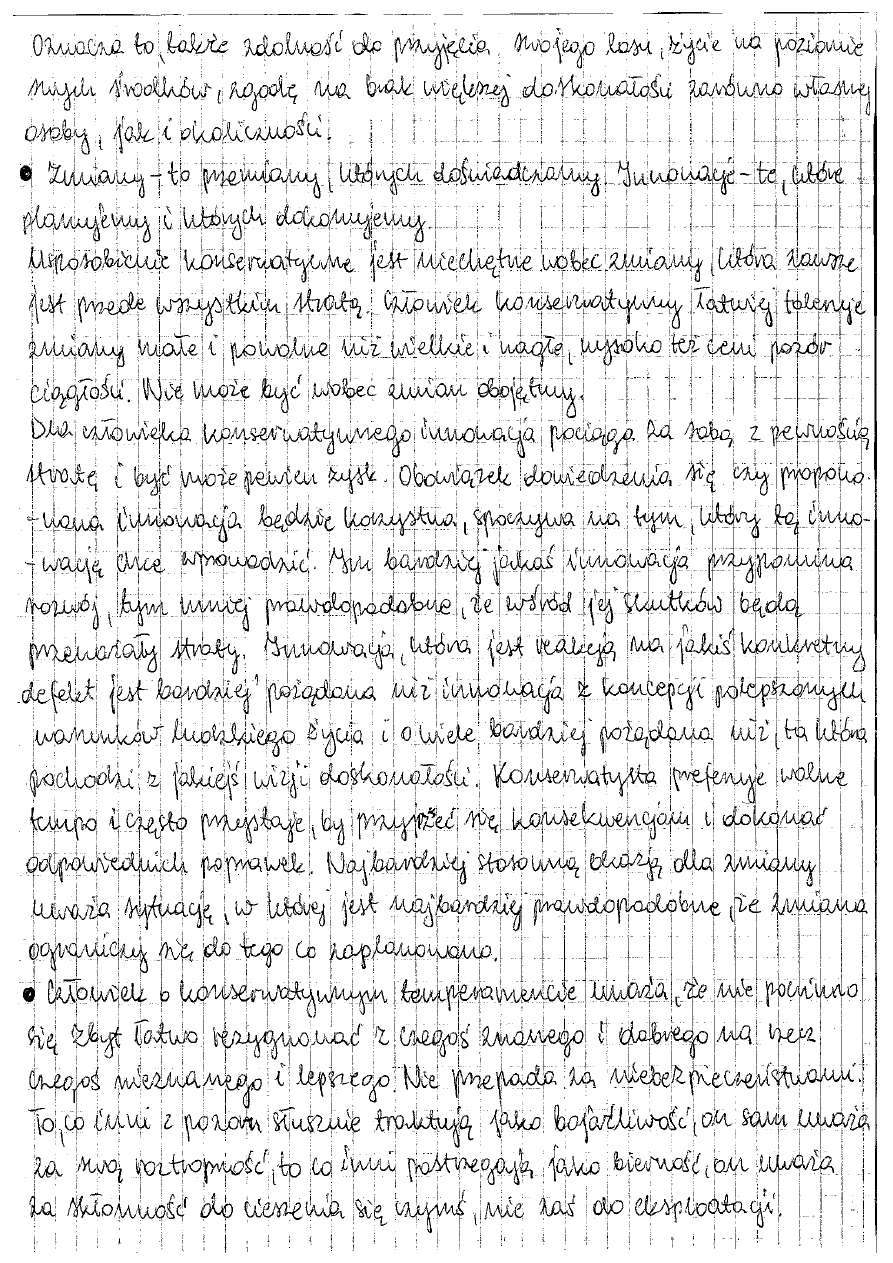 Oznacza to, także zdolność do przyjęcia swojego losu, życie na poziomie
swych środków, zgodę na brak większej doskonałości zarówno własnej
osoby, jak i okoliczności.
• Zmiany - to przemiany, których doświadczamy. Innowacje - te, które
planujemy i których dokonujemy.
Usposobienie konserwatywne jest niechętne wobec zmiany, która zawsze
jest przede wszystkim stratą. Człowiek konserwatywny łatwiej toleruje
zmiany małe i powolne niż wielkie i nagłe, wysoko też ceni pozór
ciągłości. Nie może być wobec zmian obojętny.
Dla człowieka konserwatywnego innowacja pociąga za sobą z pewnością
stratę i być może pewien zysk. Obowiązek dowiedzenia się czy propono-
-wana innowacja będzie korzystna, spoczywa na tym, który tą inno-
-wację chce wprowadzić. Im bardziej jakaś innowacja przypomina
rozwój, tym mniej prawdopodobne, że wśród jej skutków będą
przeważały straty. Innowacja, która jest reakcją na jakiś konkretny
defekt jest bardziej pożądana niż innowacja z koncepcji polepszonych
warunków ludzkiego życia i o wiele bardziej pożądana niż, ta która
pochodzi z jakiejś wizji doskonałości. Konserwatysta preferuje wolne
tempo i często przystaje, by przyjrzeć się konsekwencjom i dokonać
odpowiednich poprawek. Najbardziej stosowną okazją dla zmiany
uważa sytuację, w której jest najbardziej prawdopodobne, że zmiana
ograniczy się do tego co zaplanowano.
• Człowiek o konserwatywnym temperamencie uważa, że nie powinno
się zbyt łatwo rezygnować z czegoś znanego i dobrego na rzecz
czegoś nieznanego i lepszego. Nie przepada za niebezpieczeństwami.
To, co inni z pozoru słusznie traktują jako bojaźliwość, on sam uważa
za swą roztropność, to co inni postrzegają jako bierność, on uważa
za skłonność do cieszenia się czymś, nie zaś do eksploatacji.